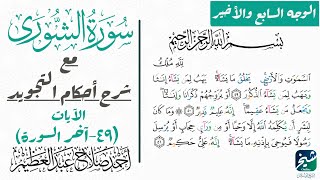 الوجه السابع والأخير
سورة الشورى
مع
شرح أحكام التجويد
الآيات
(٤٩-آخر السورة)
أحمد صلاح عبد العظيم
بسم الله الرحمن الرحيم
لله ملك
السموات والأرض يخلق ما يشاء يهب لمن يشاء إناثا
ويهب لمن يشاء الذكور ۝ أو يزوجهم ذكرانا وإناثا
ويجعل من يشاء عقيما إنه عليم قدير ۝ وما كان
لبشر أن يكلمه الله إلا وحيا أو من وراي حجاب أو يرسل
رسولا فيوحي بإذنه ما يشاء إنه علي حكيم ۝